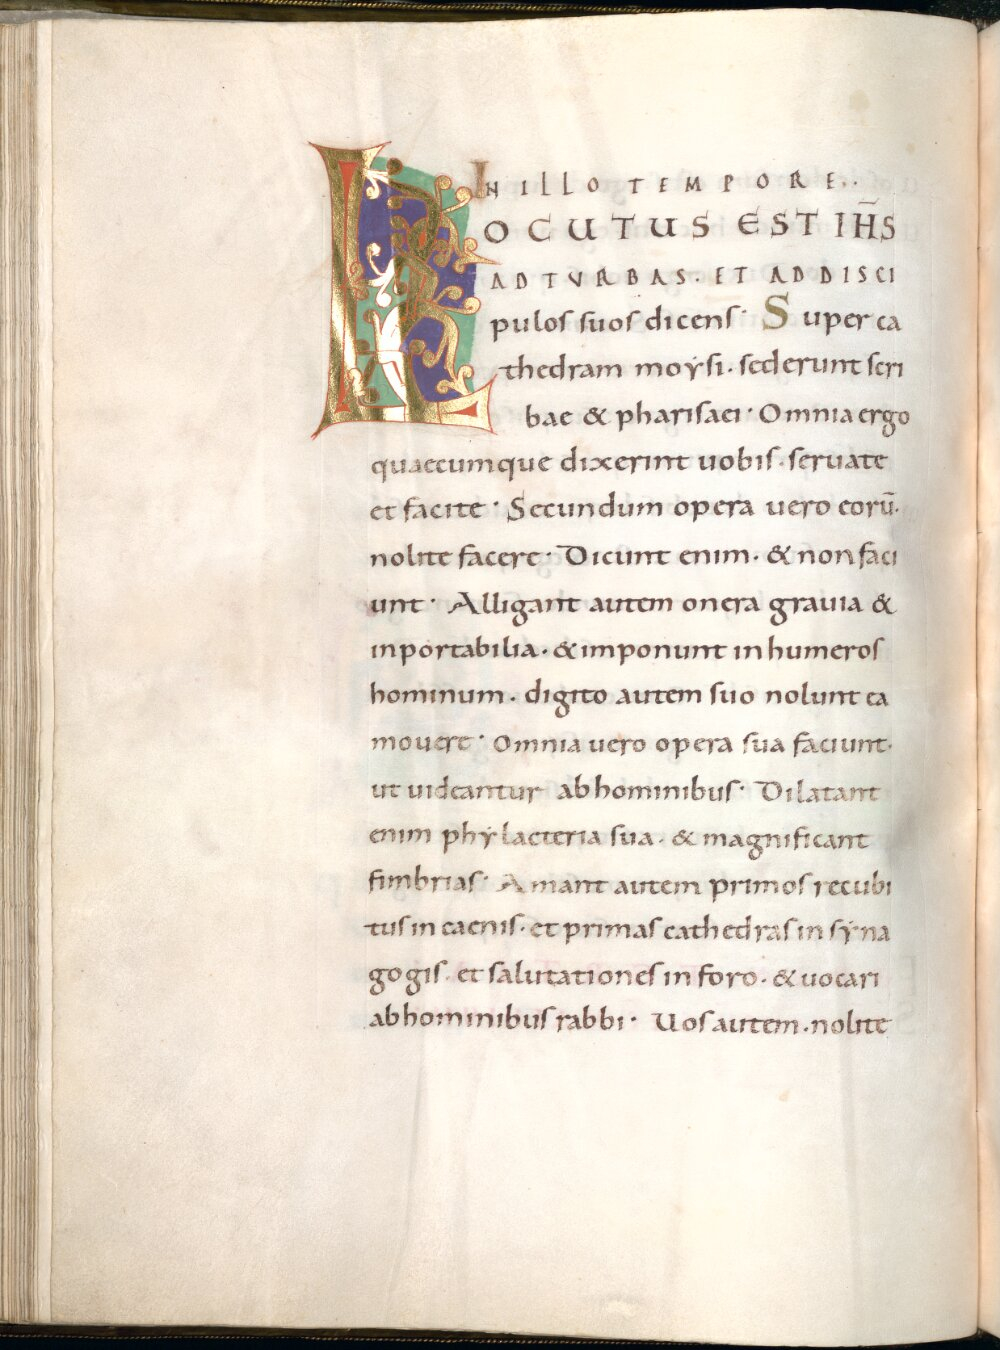 IN ILLO TEMPORE..
LOCUTUS EST IH̅S
AD TURBAS. ET AD DISCI
pulos suos dicens· Super ca
thedram moẏsi. sederunt scri
bae & pharisaei· Omnia ergo
quaecumque dixerint uobis. seruate
et facite· Secundum opera uero eorū.
nolite facere· Dicunt enim. & non faci
unt· Alligant autem onera grauia &
inportabilia. & imponunt in humeros
hominum. digito autem suo nolunt ea
mouere· Omnia uero opera sua faciunt.
ut uideantur ab hominibus· Dilatant
enim phẏlacteria sua. & magnificant
fimbrias· Amant autem primos recubi
tus in caenis. et primas cathedras in sẏna
gogis. et salutationes in foro. & uocari
ab hominibus rabbi· Uos autem. nolite